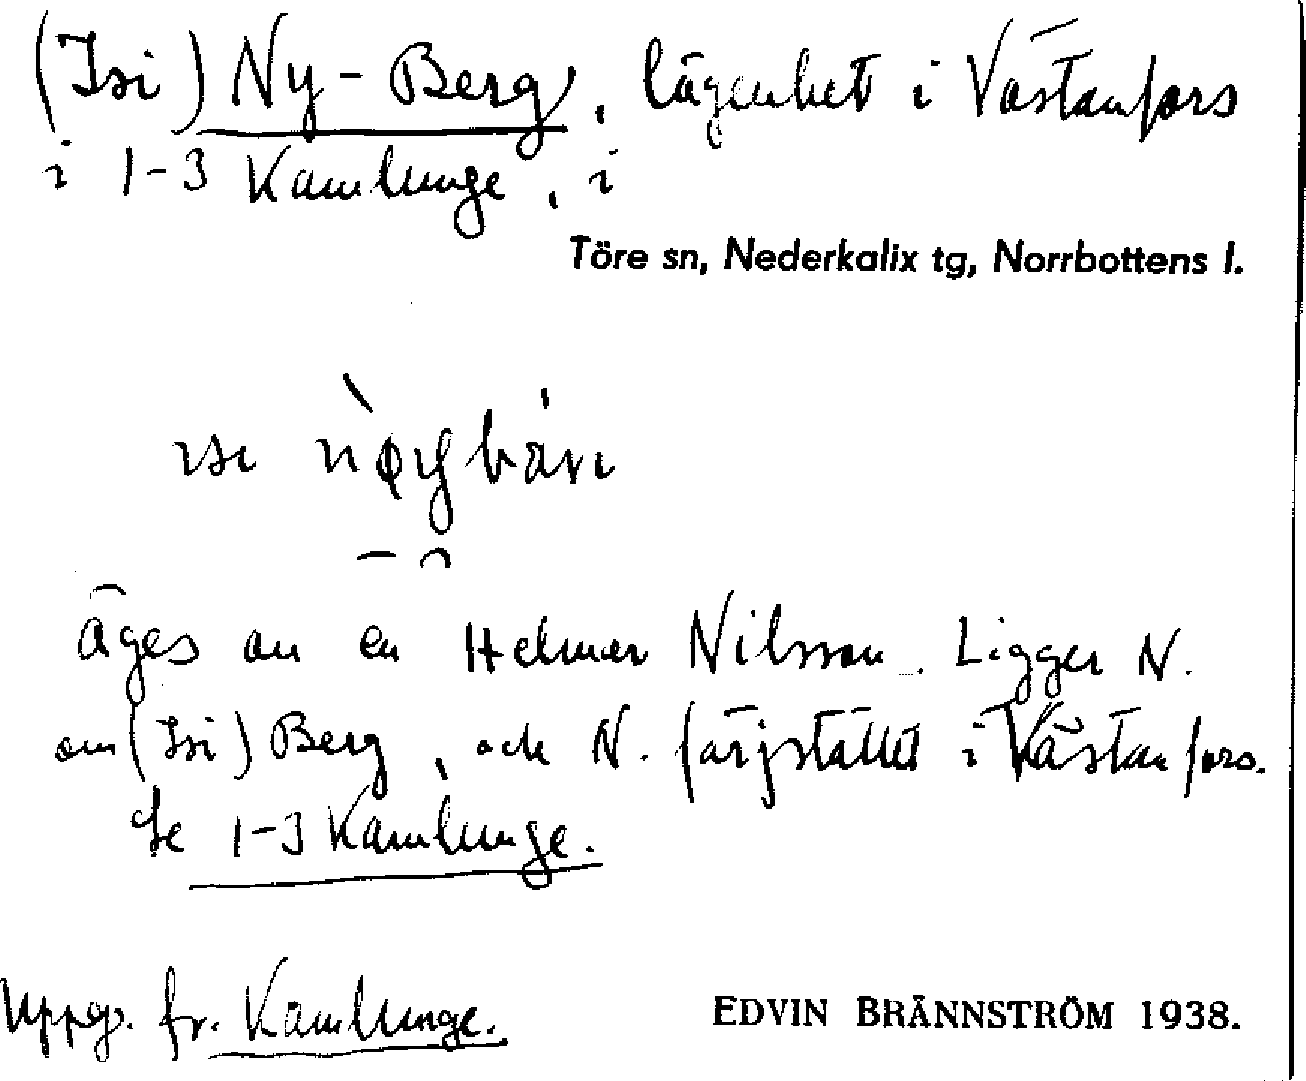 (Isi) Ny-Berg, lägenhet i Västanfors
i 1-3 Kamlunge, i
Töre sn, Nederkalix tg, Norrbottens l.
ɪsɩ
äges av en Helmer Nilsson. Ligger N.
om (Isi) Berg, och N. färjstället i Västanfors.
Se 1-3 Kamlunge.
Uppg. fr. Kamlunge.
EDVIN BRÄNNSTRÖM 1938.